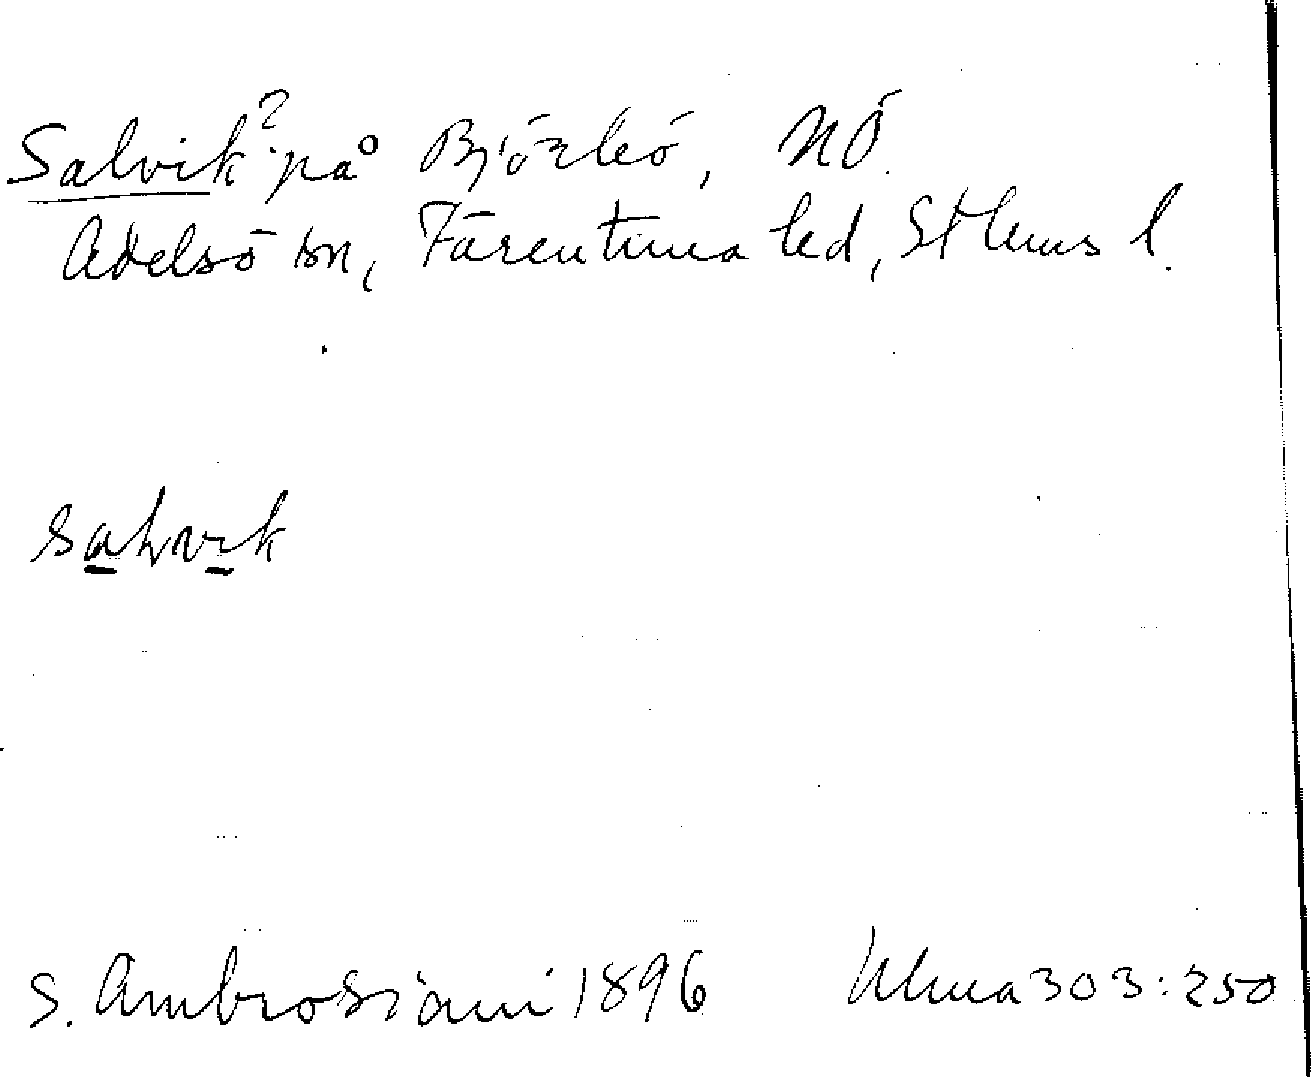 Salvik? på Björkö, NÖ.
Adelsö sn, Färentuna hd, Sthlms l.
salvik
S. Ambrosiani 1896 Ulma 303:250